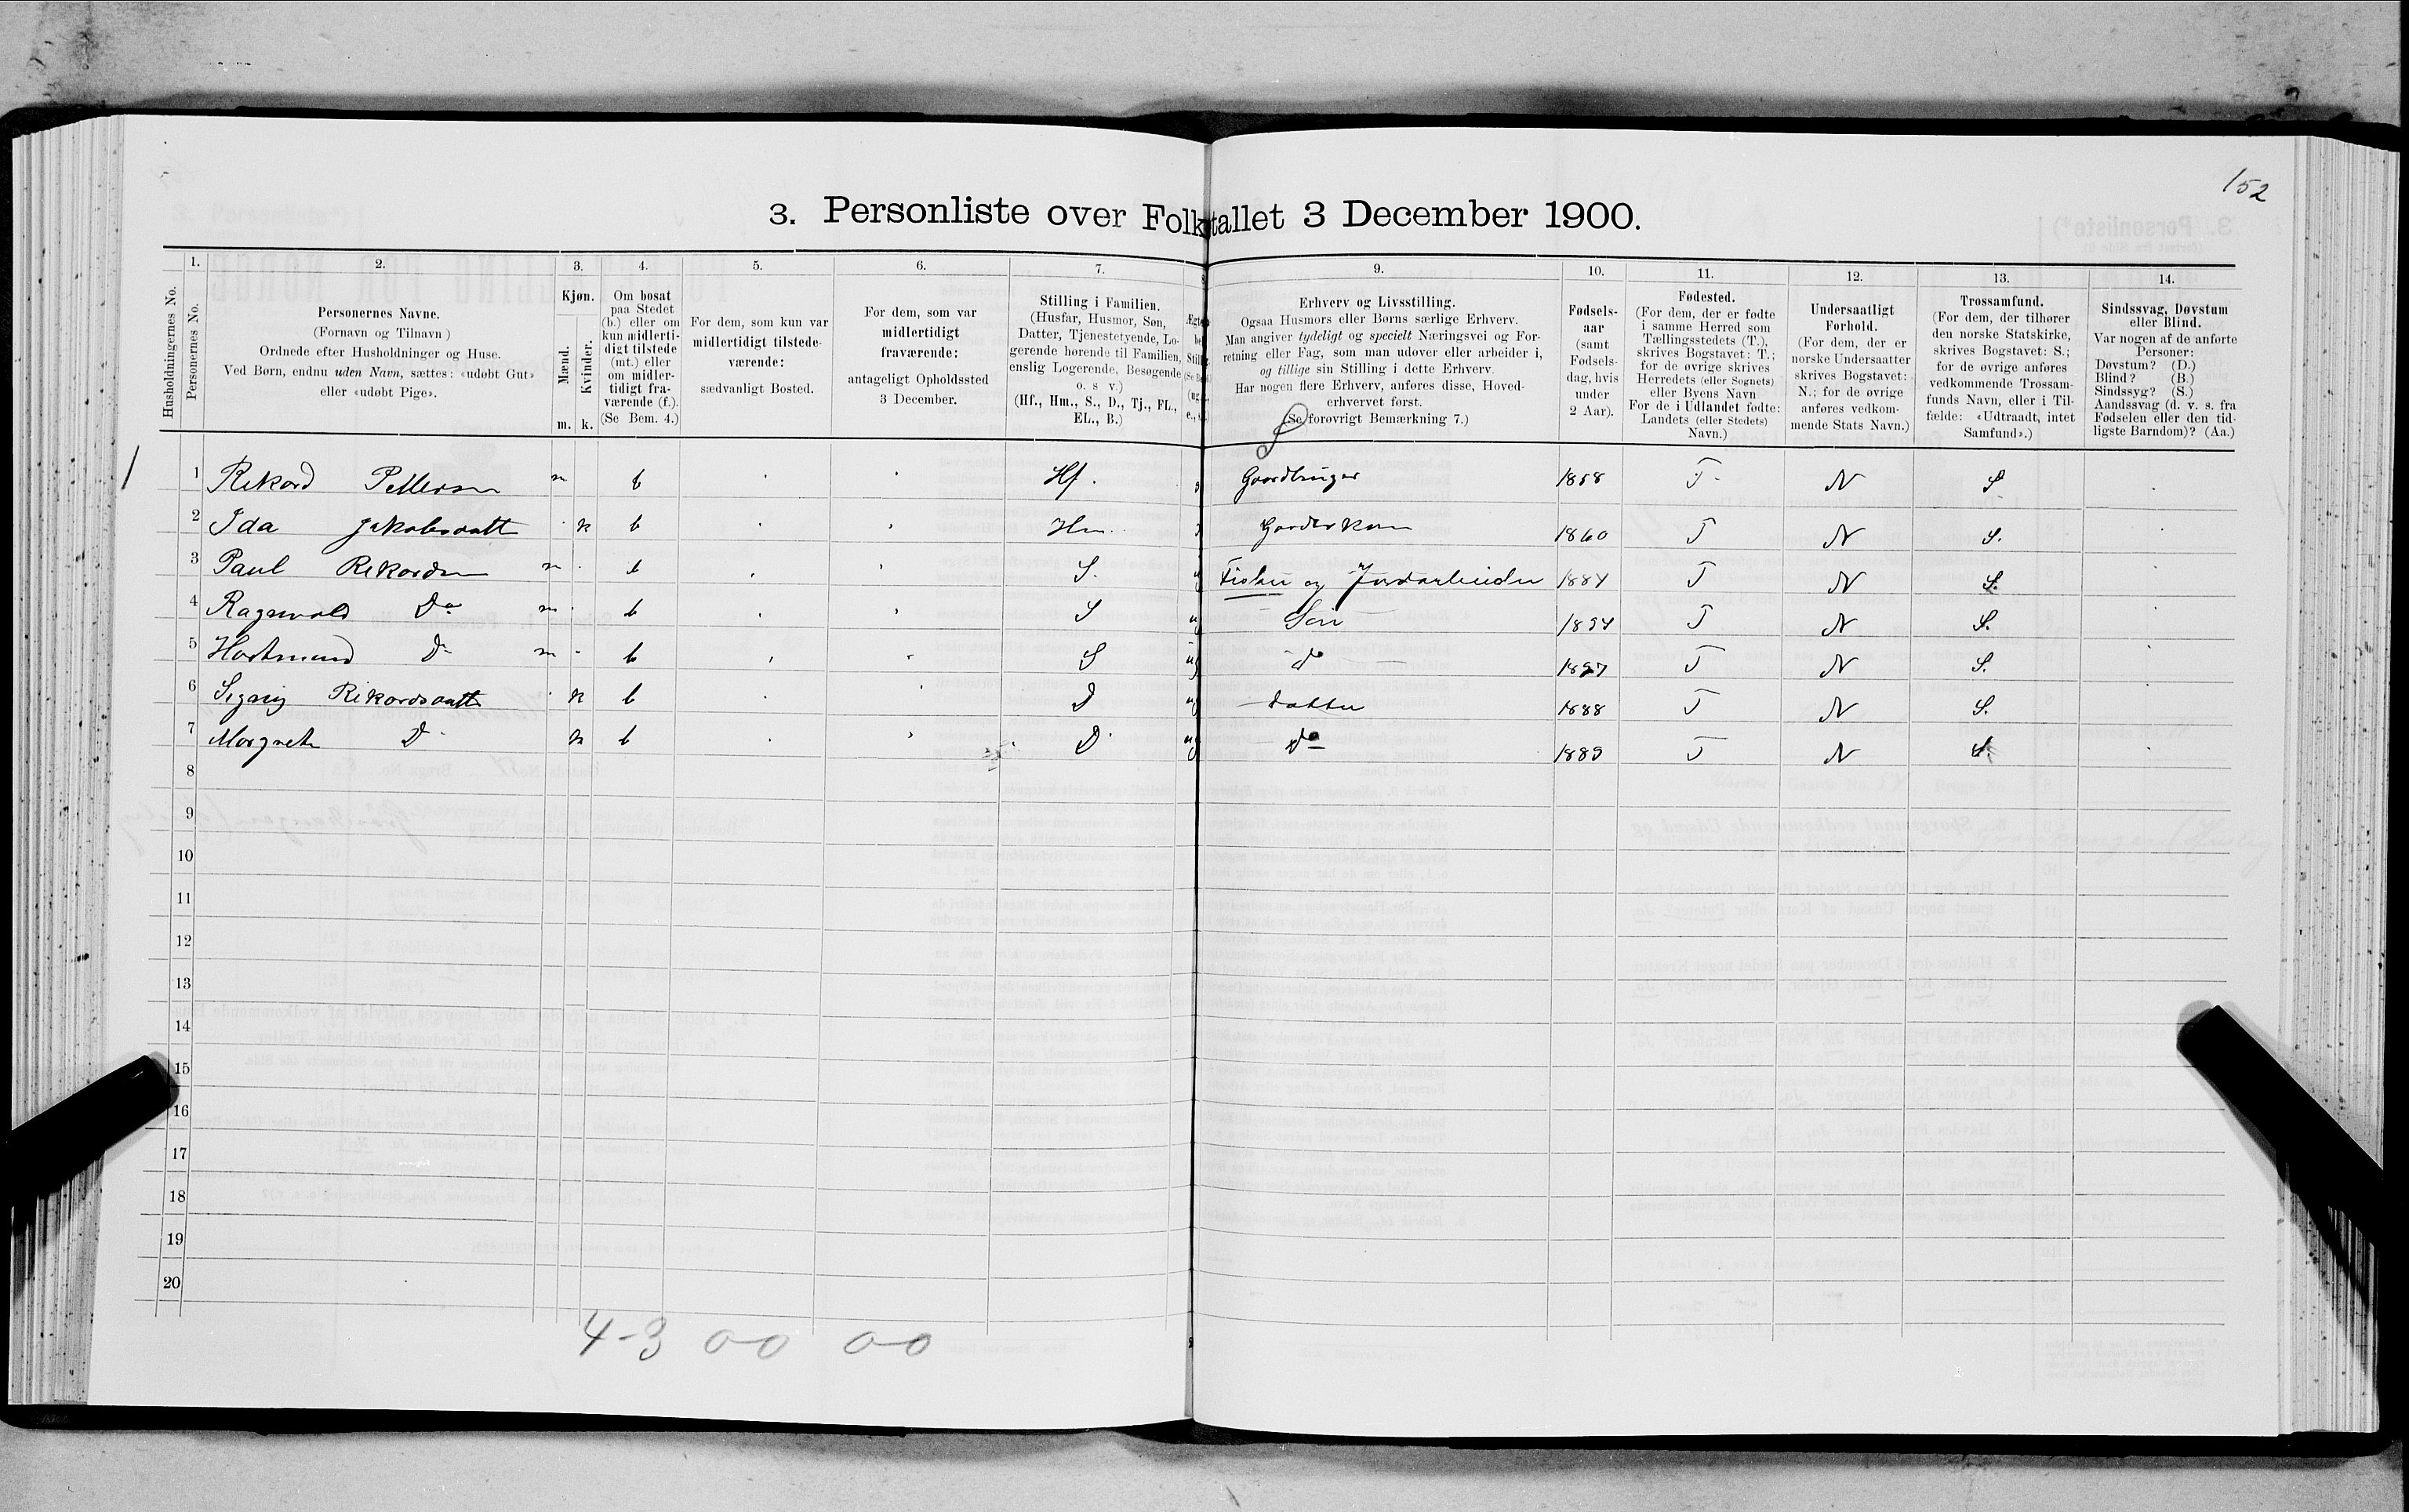 152
3. Personliste over Folketallet 3 December 1900.
1. 2. 3. 4. 5. 6. 7. 9. 10. 11. 12. 13. 14.
Husholdningernes No.
Personernes No.
Personernes Navne.
(Fornavn og Tilnavn)
Ordnede efter Husholdninger og Huse.
Ved Børn, endnu uden Navn, sættes: «udøbt Gut»
eller «udøbt Pige».
Kjøn.
Mænd.
Kvinder.
m. k.
Om bosat
paa Stedet
(b.) eller om
kun midlerti-
digt tilstede
(mt.) eller
om midler-
tidigt fra-
værende (f.).
(Se Bem. 4.)
For dem, som kun var
midlertidigt tilstede-
værende:
sædvanligt Bosted.
For dem, som var
midlertidigt
fraværende:
antageligt Opholdssted
3 December.
Stilling i Familien.
(Husfar, Husmor, Søn,
Datter, Tjenestetyende, Lo-
gerende hørende til Familien,
enslig Logerende, Besøgende
o. s v.)
(Hf., Hm., S., D., Tj., FL.,
EL., B.)
Erhverv og Livsstilling.
Ogsaa Husmors eller Børns særlige Erhverv.
Man angiver tydeligt og specielt Næringsvei og For-
retning eller Fag, som man udøver eller arbeider i,
og tillige sin Stilling i dette Erhverv.
Har nogen flere Erhverv, anføres disse, Hoved-
erhvervet først.
(Se forøvrigt Bemærkning 7.)
Fødsels-
aar
(samt
Fødsels-
dag, hvis
under
2 Aar).
Fødested.
(For dem, der er fødte
i samme Herred som
Tællingsstedets (T.),
skrives Bogstavet: T.;
for de øvrige skrives
Herredets (eller Sognets)
eller Byens Navn
For de i Udlandet fødte:
Landets (eller Stedets)
Navn.)
Undersaatligt
Forhold.
(For dem, der er
norske Undersaatter
skrives Bogstavet:
N.; for de øvrige
anføres vedkom-
mende Stats Navn.)
Trossamfund.
(For dem, der tilhører
den norske Statskirke,
skrives Bogstavet: S.;
for de øvrige anføres
vedkommende Trossam-
funds Navn, eller i Til-
fælde: «Udtraadt, intet
Samfund».)
Sindssvag, Døvstum
eller Blind.
Var nogen af de anførte
Personer:
Døvstum? (D.)
Blind? (B.)
Sindssyg? (S.)
Aandssvag (d. v. s. fra
Fødselen eller den tid-
ligste Barndom)? (Aa.)
1 1 Rikard Pettersen m b Hf. Gaardbruger 1858 T. N S
2 Ida Jakobsdatt k b Hm. Gaardbr Kone 1860 T N S.
3 Paul Rikardsen m b S. ug Fisker og Jordarbeider 1884 T N S.
4 Ragnvald Do m b S ug Søn 1894 T N S.
5 Hartmand Do m b S ug do 1897 T N S.
6 Signy Rikardsdatt k b D ug datter 1888 T N S.
7 Margrete D k b D ug Do 1889 T N S
8
9
10
11
12
13
14
15
16
17
18
19
20
4-3 0-0 0-0